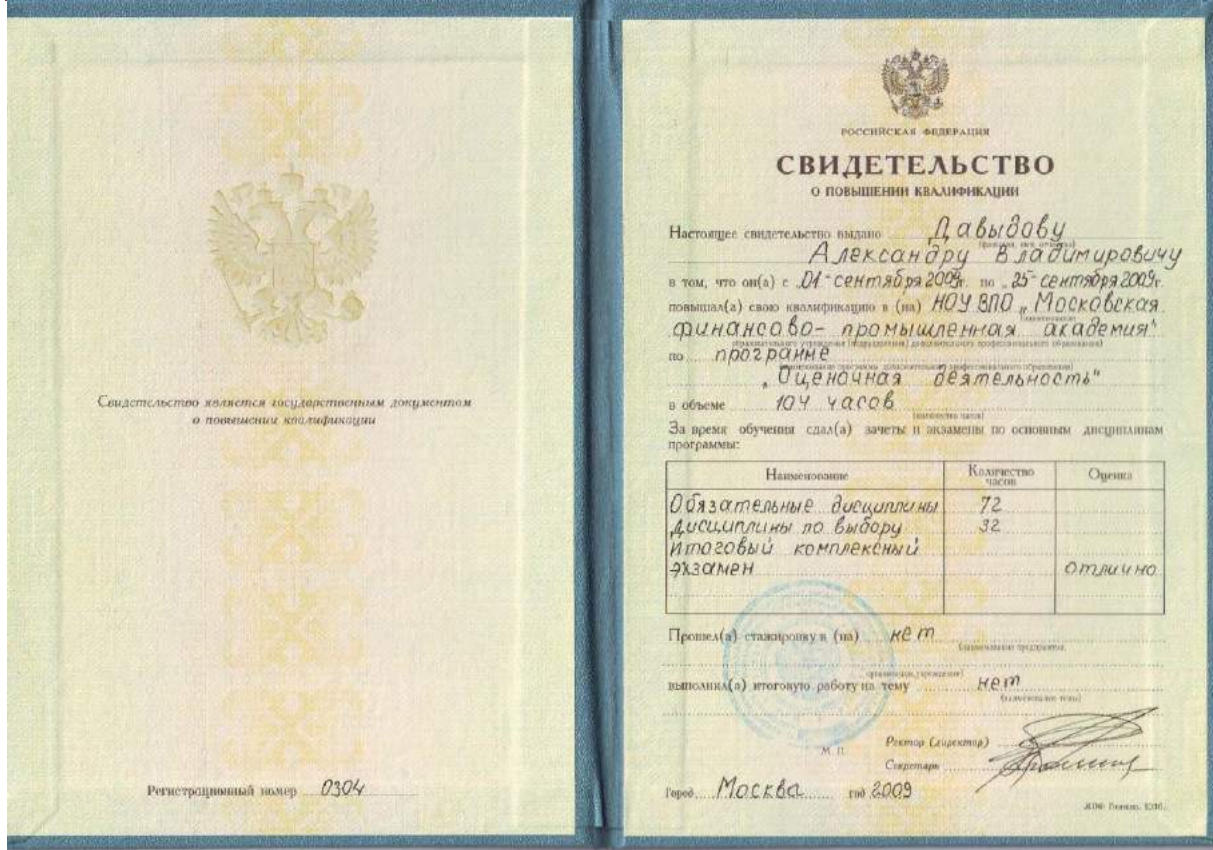 Свидетельство является государственным документом
о повышении квалификации
Регистрационный номер 0304
РОССИЙСКАЯ ФЕДЕРАЦИЯ
СВИДЕТЕЛЬСТВО
О ПОВЫШЕНИИ КВАЛИФИКАЦИИ
Настоящее свидетельство выдано Давыдову
(фамилия, имя, отчество)
Александру Владимировичу
в том, что он(а) с „01“ сентября 2009г. по „25“ сентября 2009г.
повышал(а) свою квалификацию в (на) НОУ ВПО „Московская
(наименование
финансово- промышленная академия"
образовательного учреждения (подразделения) дополнительного профессионального образования)
по программе
(наименование программы дополнительного профессионального образования)
„Оценочная деятельность"
в объеме 104 часов
(количество часов)
За время обучения сдал(а) зачеты и экзамены по основным дисциплинам
программы:
Наименование Количество часов Оценка
Обязательные дисциплины 72
Дисциплины по выбору 32
Итоговый комплексный
экзамен отлично
Прошел(а) стажировку в (на) нет
(наименование предприятия,
организации, учреждения)
выполнил(а) итоговую работу на тему нет
(наименование темы)
М. П.
Ректор (директор)
Секретарь
Город Москва год 2009